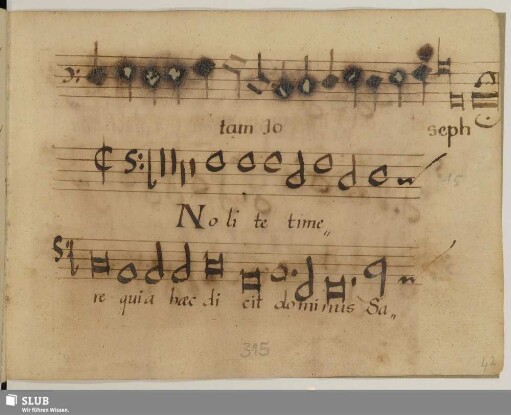 tam Jo seph
No li te time„
re quia hæc di cit dominus Sa„
315
42
SLUB
Wir führen Wissen.